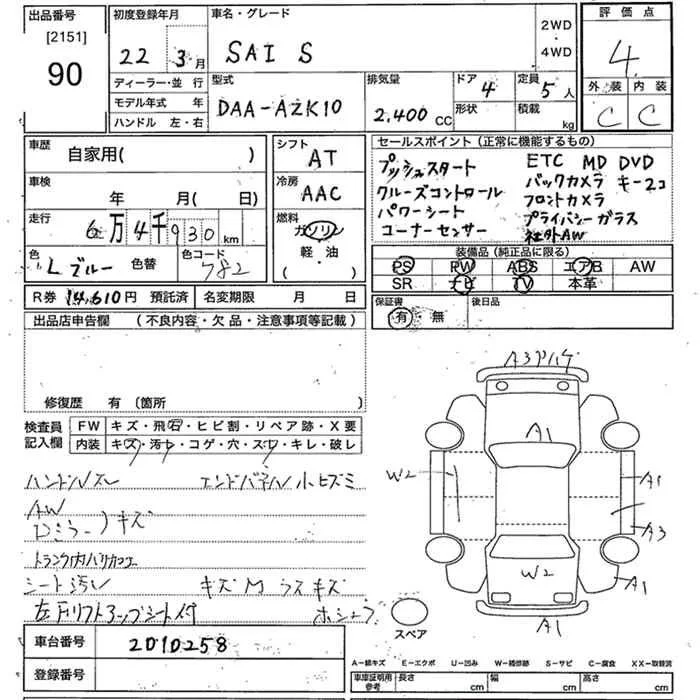 出品番号 初度登録年月 車名・グレード 2WD・4WD 評価点
[2151]
90
22 3月 SAI S 4
ディーラー・並 行 型式 排気量 ドア 4 定員 5人 外装 内装
モデル年式 年 DAA-AZK10 2,400 CC 形状 積載 kg C C
ハンドル 左・右
車歴 自家用( ) シフト AT セールスポイント(正常に機能するもの)
車検 年 月(日) 冷房 AAC
プッシュスタート ETC MD DVD
クルーズコントロール バックカメラ キー2コ
パワーシート フロントカメラ
コーナーセンサー プライバシーガラス
社外AW
走行 6万4千930km 燃料 ガソリン
軽油
色 Lブルー 色替 色コード 782
装備品(純正品に限る)
PS PW ABS エアB AW
SR ナビ TV 本革
R券 14,610円 預託済 名変期限 月 日
保証書 有・無 後日品
出品店申告欄 (不良内容・欠品・注意事項等記載)
修復歴 有(箇所
検査員記入欄 FW キズ・飛石・ヒビ割・リペア跡・X要
内装 キズ・汚レ・コゲ・穴・スレ・キレ・破レ
ハンドルスレ
AW
Dミラー)キズ
シート汚レ キズM ラスキズ
左下リフトアップシート付
A1
W2 A1
A3
W2 A1
A1
スペア
車台番号 2010258
登録番号
A-線キズ E-エクボ U-凹み W-補修跡 S-サビ C-腐食 XX-取替済
車庫証明用参考 長さ cm 幅 cm 高さ cm